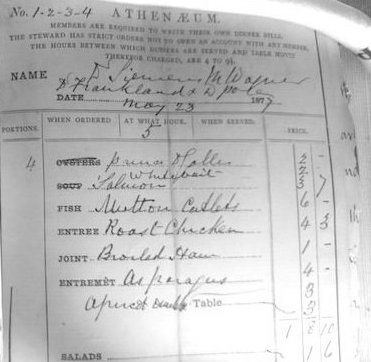 No. 1-2-3-4 ATHENÆUM.
MEMBERS ARE REQUIRED TO WRITE THEIR OWN DINNER BILLS.
THE STEWARD HAS STRICT ORDERS NOT TO OPEN AN ACCOUNT WITH ANY MEMBER.
THE HOURS BETWEEN WHICH DINNERS ARE SERVED AND TABLE MONEY
THEREFOR CHARGED, ARE 4 TO 9½.
NAME D Siemens M Wagner
D Frankland & D
DATE May 23 1877
WHEN ORDERED AT WHAT HOUR. WHEN SERVED.
PORTIONS. 5 PRICE.
4 OYSTERS 2 -
Whitebait 2
SOUP Salmon 3 7
FISH Mutton Cutlets 6 -
ENTREE Roast Chicken 4 3
JOINT Broiled Ham 1 -
ENTREMÊT Asparagus 4 -
Table 3
1 8 10
SALADS 1 6